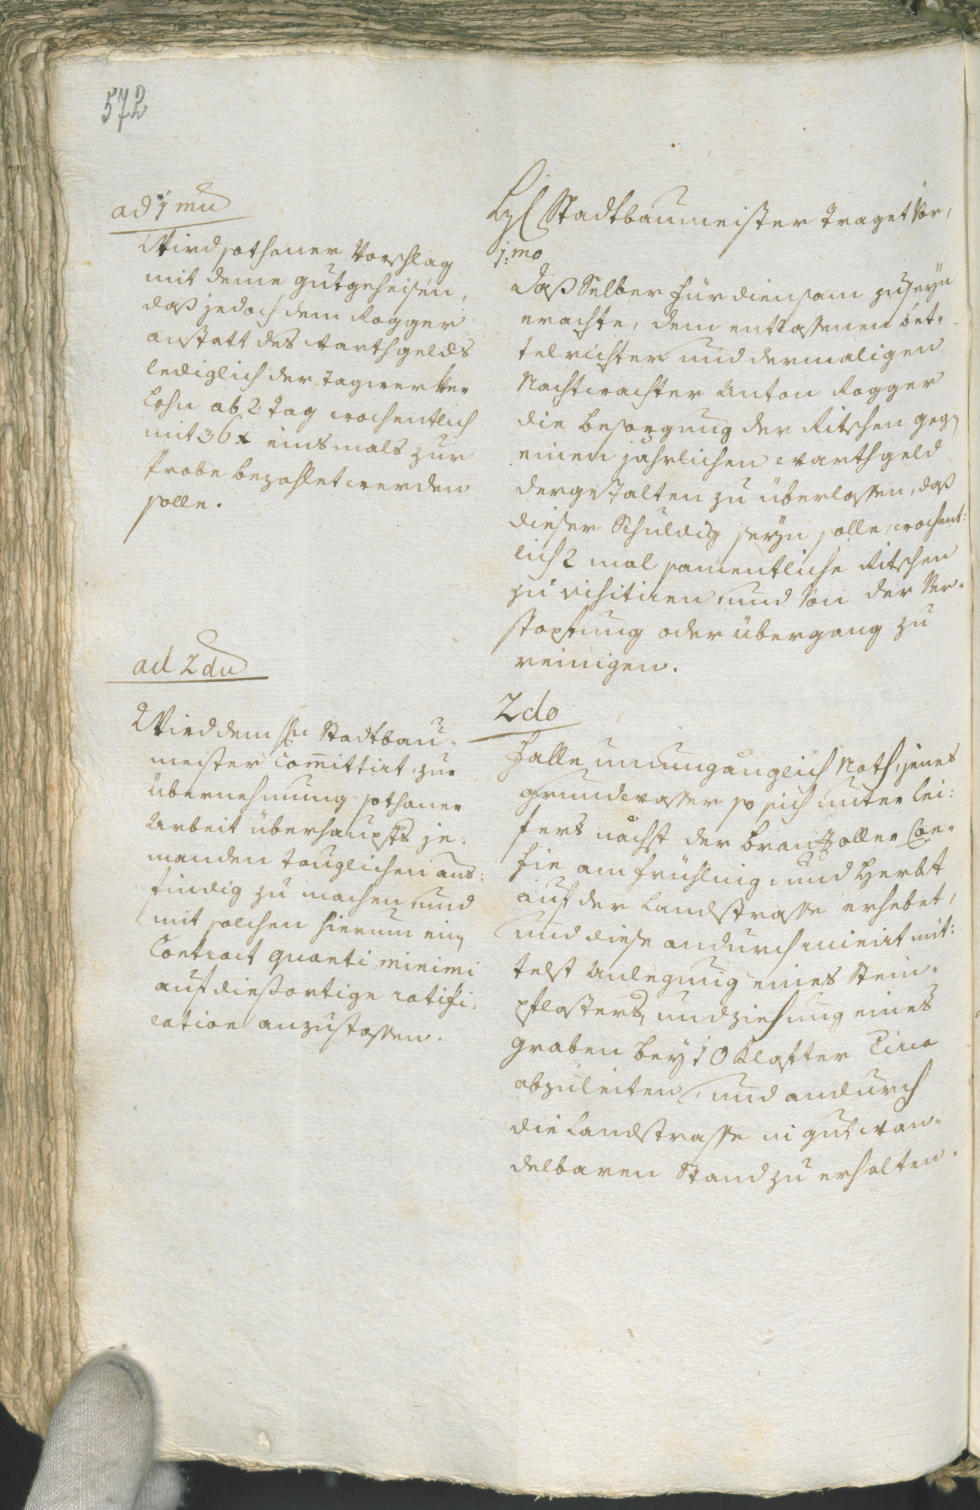 572
ad 1mu
Wird sothaner Vorschlag
mit deme gutgeheisen,
daß jedoch dem Rogger
anstatt des Warthgelds
lediglich der Tagwerker
Lohn ab 2 Tag wochentlich
mit 36 x einsmals zur
Probe bezahlet werden
solle.
ad 2du
Wird dem Hn Stadtbau-
meister Committirt, zur
Übernehmung sothaner
Arbeit überhaupts je-
manden tauglichen aus-
findig zu machen, und
mit solchen hierum ein
Contract quanti minimi
auf dießortige ratifi-
cation anzustossen.
Stadtbaumeister traget vor,
1:mo
Daß Selber für diensam zu seyn
erachte, dem entlassenen bet-
telrichter und dermaligen
Nachtwachter Anton Rogger
die besorgung der Ritschen gegen
einen jährlichen Warthgeld
dergestalten zu überlassen, daß
dieser Schuldig seyn solle, wochent-
lich 2 mal samentliche Ritschen
zu visitiren, und von der Ver-
stopfung oder übergang zu
reinigen.
2do
Falle unumganglich Noth, jenes
grundwasser so sich unter Lei-
fers nächst der Branzoller
am frühling und Herbst
auf der Landstrasse erhebet,
und diese andurch ruinirt mit-
telst Anlegung eines Stein-
pflasters, und ziehung eines
graben bey 10 Klafter Circa
abzuleiten, und andurch
die Landstrasse in gut wan-
delbaren Stand zu erhalten.